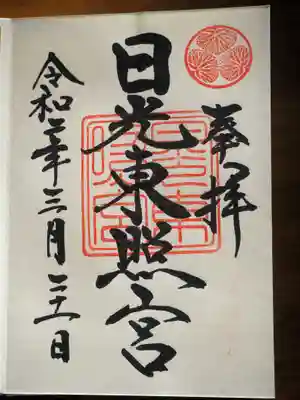 奉拝
日光東照宮
令和二年三月二十一日